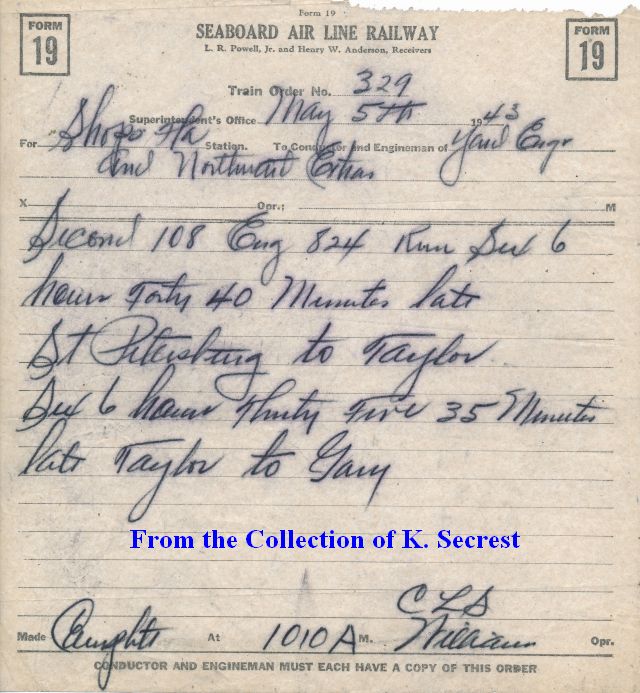 Form 19
FORM 19
SEABOARD AIR LINE RAILWAY
FORM 19
L. R. Powell, Jr. and Henry W. Anderson, Receivers
Train Order No. 329
Superintendent's Office May 5th 1943
For Shops Fla Station. To Conductor and Engineman of Yard Engr
and Northward Extras
X Opr.; M
Second 108 Eng 824 Run Six 6
hours Forty 40 Minutes late
St Petersburg to Taylor
Six 6 hours Thirty Five 35 Minutes
late Taylor to Gary
From the Collection of K. Secrest
CLS
Made At 1010 A M. Williams Opr.
CONDUCTOR AND ENGINEMAN MUST EACH HAVE A COPY OF THIS ORDER